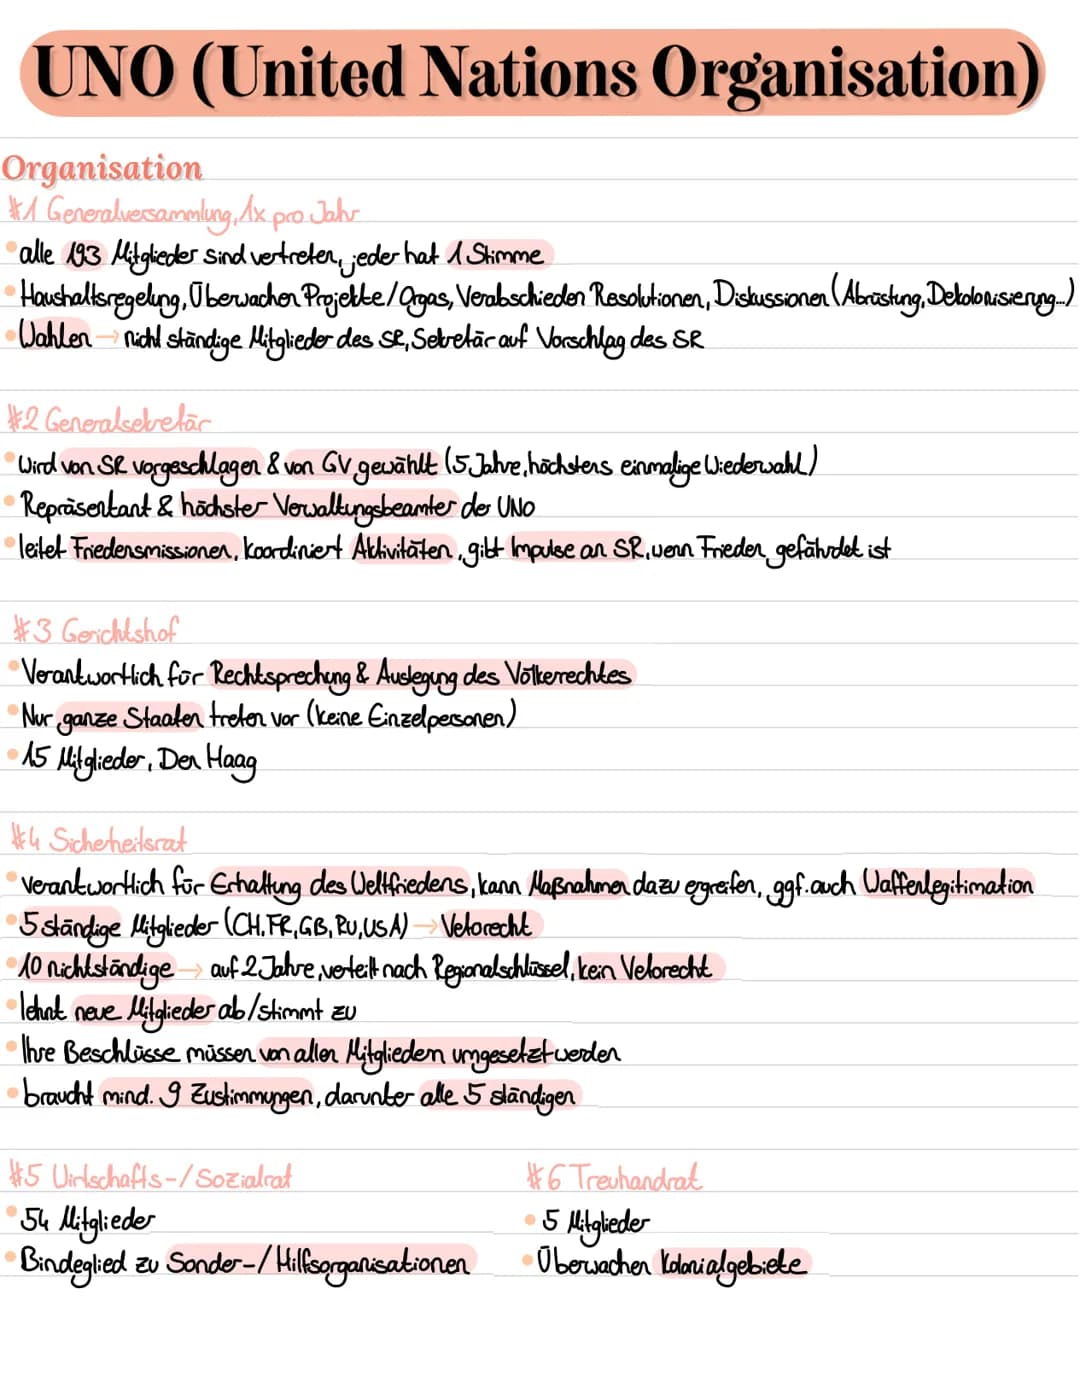 UNO (United Nations Organisation)
Organisation
#1 Generalversammlung, 1x pro Jahr
• alle 193 Mitglieder sind vertreten, jeder hat 1 Stimme
• Haushaltsregelung, Überwachen Projekte/Orgas, Verabschieden Resolutionen, Diskussionen (Abrüstung, Dekolonisierung...)
• Wahlen → nicht ständige Mitglieder des SR, Sekretär auf Vorschlag des SR
#2 Generalsekretär
• Wird von SR vorgeschlagen & von GV gewählt (5 Jahre, höchstens einmalige Wiederwahl)
• Repräsentant & höchster Verwaltungsbeamter der UNO
• leitet Friedensmissionen, koordiniert Aktivitäten, gibt Impulse an SR, wenn Frieden gefährdet ist
#3 Gerichtshof
• Verantwortlich für Rechtsprechung & Auslegung des Völkerrechtes
• Nur ganze Staaten treten vor (keine Einzelpersonen)
• 15 Mitglieder, Den Haag
#4 Sicherheitsrat
• verantwortlich für Erhaltung des Weltfriedens, kann Maßnahmen dazu ergreifen, ggf. auch Waffenlegitimation
• 5 ständige Mitglieder (CH, FR, GB, RU, USA) → Vetorecht
• 10 nichtständige → auf 2 Jahre, verteilt nach Regionalschlüssel, kein Vetorecht
• lehnt neue Mitglieder ab/stimmt zu
• Ihre Beschlüsse müssen von allen Mitgliedern umgesetzt werden
• braucht mind. 9 Zustimmungen, darunter alle 5 ständigen
#5 Wirtschafts-/Sozialrat
• 54 Mitglieder
• Bindeglied zu Sonder-/Hilfsorganisationen
#6 Treuhandrat
• 5 Mitglieder
• Überwachen Kolonialgebiete